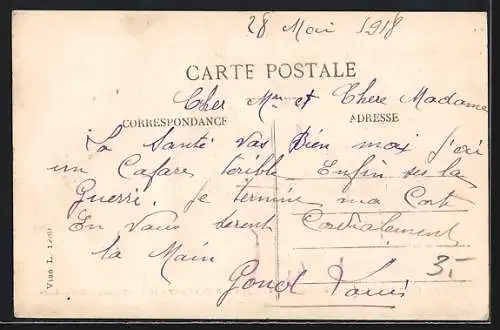 28 Mai 1918
CARTE POSTALE
Cher Mr et Chere Madame
CORRESPONDANCE ADRESSE
La Santé vas bien mais j'ai
un Cafare terible Enfin ses la
Guerre. Je termine ma Carte
En vous serent Cordialement
la Main
Louis
3.-
Visa L.